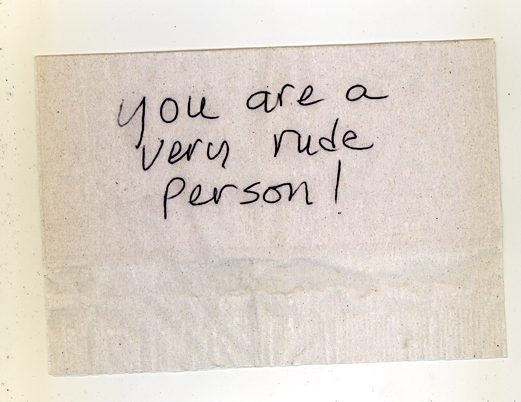 you are a
very rude
person!